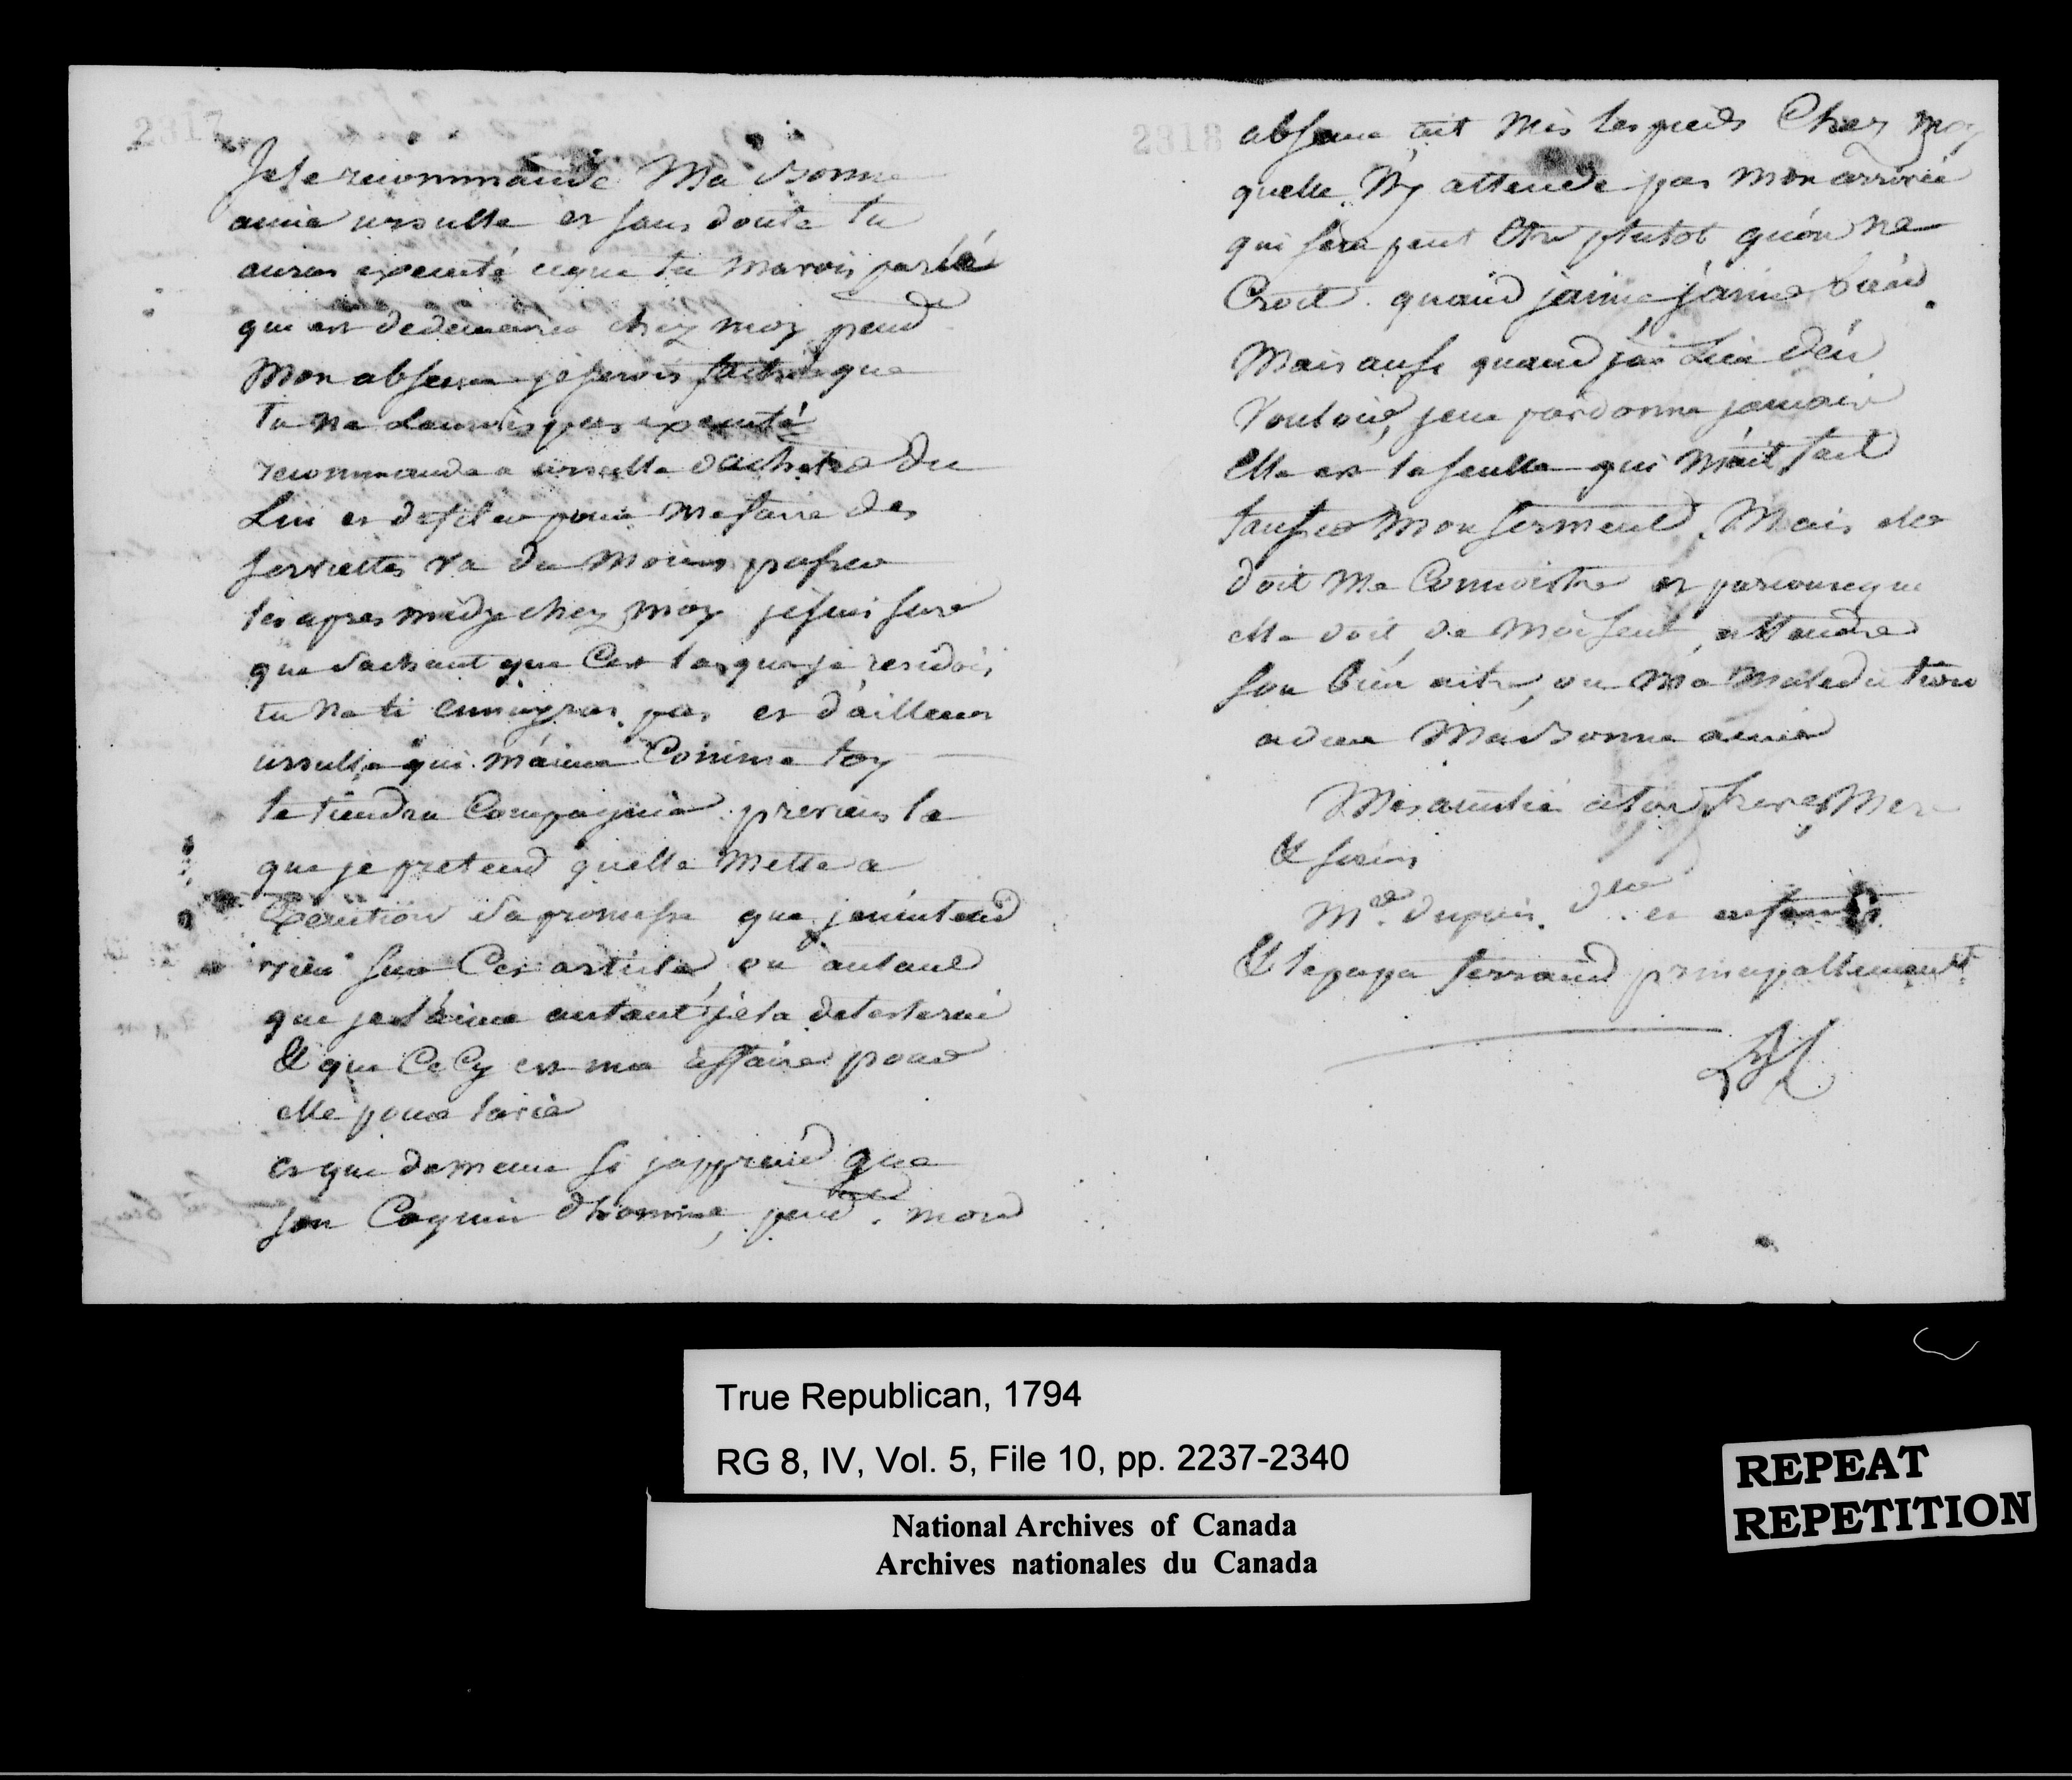 2317
Je te recommande Ma bonne
amie ursulle et sans doute tu
auras executé ceque tu mavois parlé
de
qui est dedemeurer chez moy pend
Mon absence je serois fachée que
Tu ne leurois pas executé
recommande a ursulle dachetre du
Lin et defiler pour me faire des
serviettes va du moins passer
les apres midy chez moy je suis sure
que sachant que Cest la que je residois
tu ne ti ennuyras pas et d'ailleurs
ursulle qui m'aime Comme toy
te tiendra Compagnie. previens la
que je pretend quelle Mette a
Execution sa promesse que jenintend
rien sur Cet article, ou autant
que je l'aime autant je la detesterai
& que CeCy est ma affaire pour
elle pour la vie
et que de meme si japprend que
son Coquin d'homme, pend. mon
2318
absence ait mis les pieds Chez moy
quelle N'y attende pas mon arrivée
qui sera peut Etre plutot qu'on ne
Croit. quand jaime j'aime bien
Mais ausi quand jai Lieu d'en
Vouloir, jene pardonne jamais
elle est la seulle qui m'ait fait
fausser mon serment. Mais elle
doit me Connoistre et parconseque
elle doit, de moi seul, attendre
son bien aitre, ou ma malediction
adieu Ma bonne amie
Mes amitiés a ton frere Mere
& soeurs
Md. dupuis. et enfants
& le papa ferrand principallement
True Republican, 1794
RG 8, IV, Vol. 5, File 10, pp. 2237-2340
National Archives of Canada
Archives nationales du Canada
REPEAT
REPETITION